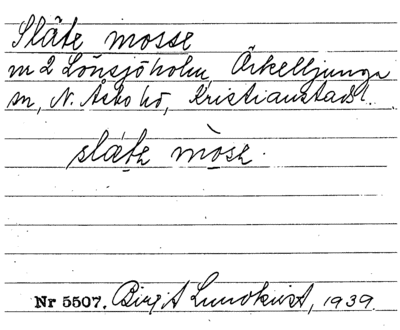 Släte mosse
m 2 Lönsjöholm, Örkelljunga
sn, N. Åsbo hd, Kristianstads l.
slá̱te mò̱se.
Nr 5507. Birgit Lundkvist, 1939.